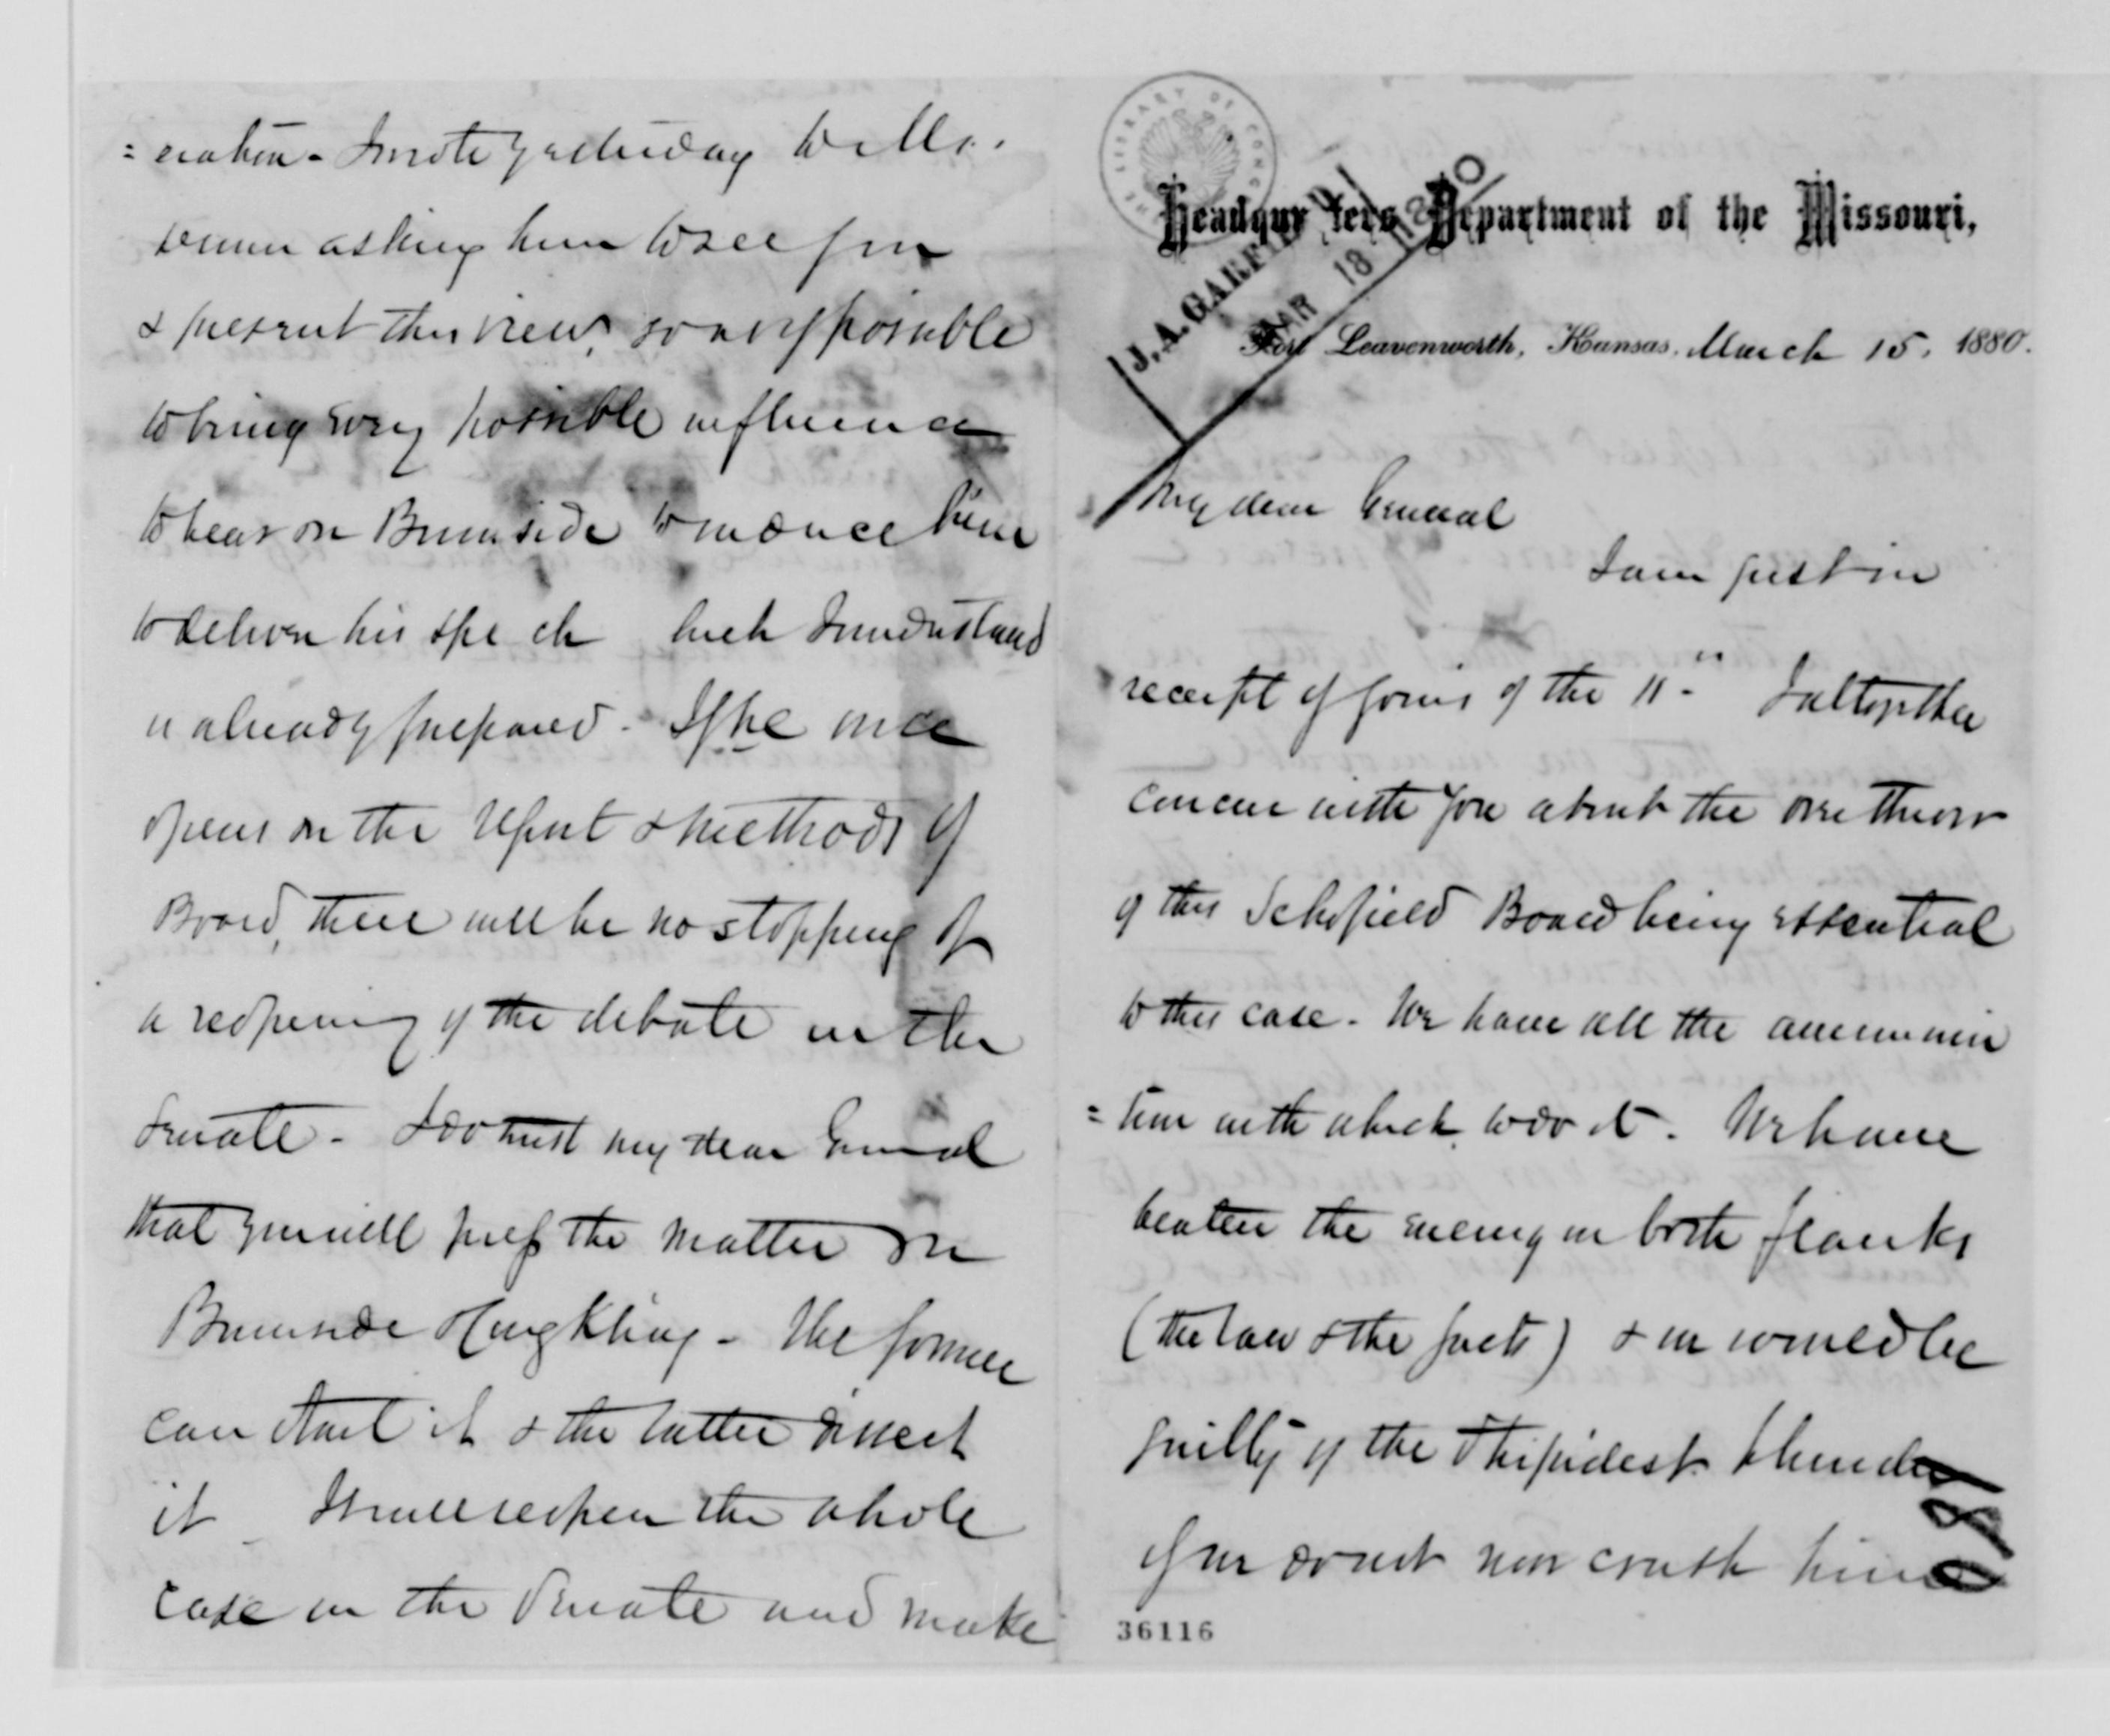 = eration - I wrote yesterday to Mr.
asking him to see you
& present this view, so as if possible
to bring every possible influence
to bear on Burnside to induce him
to deliver his spe ch hich I understand
is already prepared - If he once
opens on the report & methods of
Board, there will be no stopping of
a reopening of the debate in the
Senate - I do trust my dear General
that you will press the matter on
Burnside & King - The former
can start it & the latter
it It will reopen the whole
case in the Senate and make
THE LIBRARY OF CONG
Headquarters Department of the Missouri,
J. A. GARFIELD
MAR 18 1880
Fort Leavenworth, Kansas, March 15. 1880.
My dear General
I am just in
receipt of yours of the 11" I altogether
concur with you about the overthrow
of this Schofield Board being essential
to this case - We have all the ammuni
= tion with which to do it - We have
beaten the enemy on both flanks
(the law & the facts) & we would be
guilty of the stupidest blunder
if we do not now crush him
36116